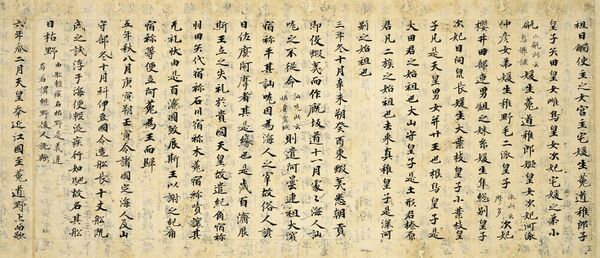 祖日觸使主之女宮主宅媛生菟道稚郎子
皇子矢田皇女雌鳥皇女次妃宅媛之弟小
媛生菟道稚郎姬皇女次妃河派
仲彥女弟媛生稚野毛二派皇子次妃
櫻井田部連男鉏之妹糸媛生隼総別皇子
次妃日向泉長媛生大葉枝皇子小葉枝皇
子凡是天皇男女并廿王也根鳥皇子是
大田君之始祖也大山守皇子是土形君榛原
君凡二族之始祖也去來真稚皇子是深河
別之始祖也
三年冬十月辛未朔癸酉東蝦夷悉朝貢
即役蝦夷而作厩坂道十一月處々海人訕
哤之不從命則遣阿曇連祖大濱
宿祢平其訕哤因為海人之宰故俗人諺
曰佐麼阿摩者其是緣也是歳百濟辰
斯王立之失礼於貴國天皇故遣紀角宿祢
羽田矢代宿祢石川宿祢木菟宿祢嘖讓其
无礼狀由是百濟國殺辰斯王以謝之紀角
宿祢等便立阿花為王而歸
五年秋八月庚寅朔壬寅令諸國定海人及山
守部冬十月科伊豆國令造船長十丈船既
成之試浮于海便輕泛疾行如馳故名其船
曰枯野 由船輕疾名枯野是義違焉若謂輕野後人訛歟
六年春二月天皇幸近江國至菟道野上而歌